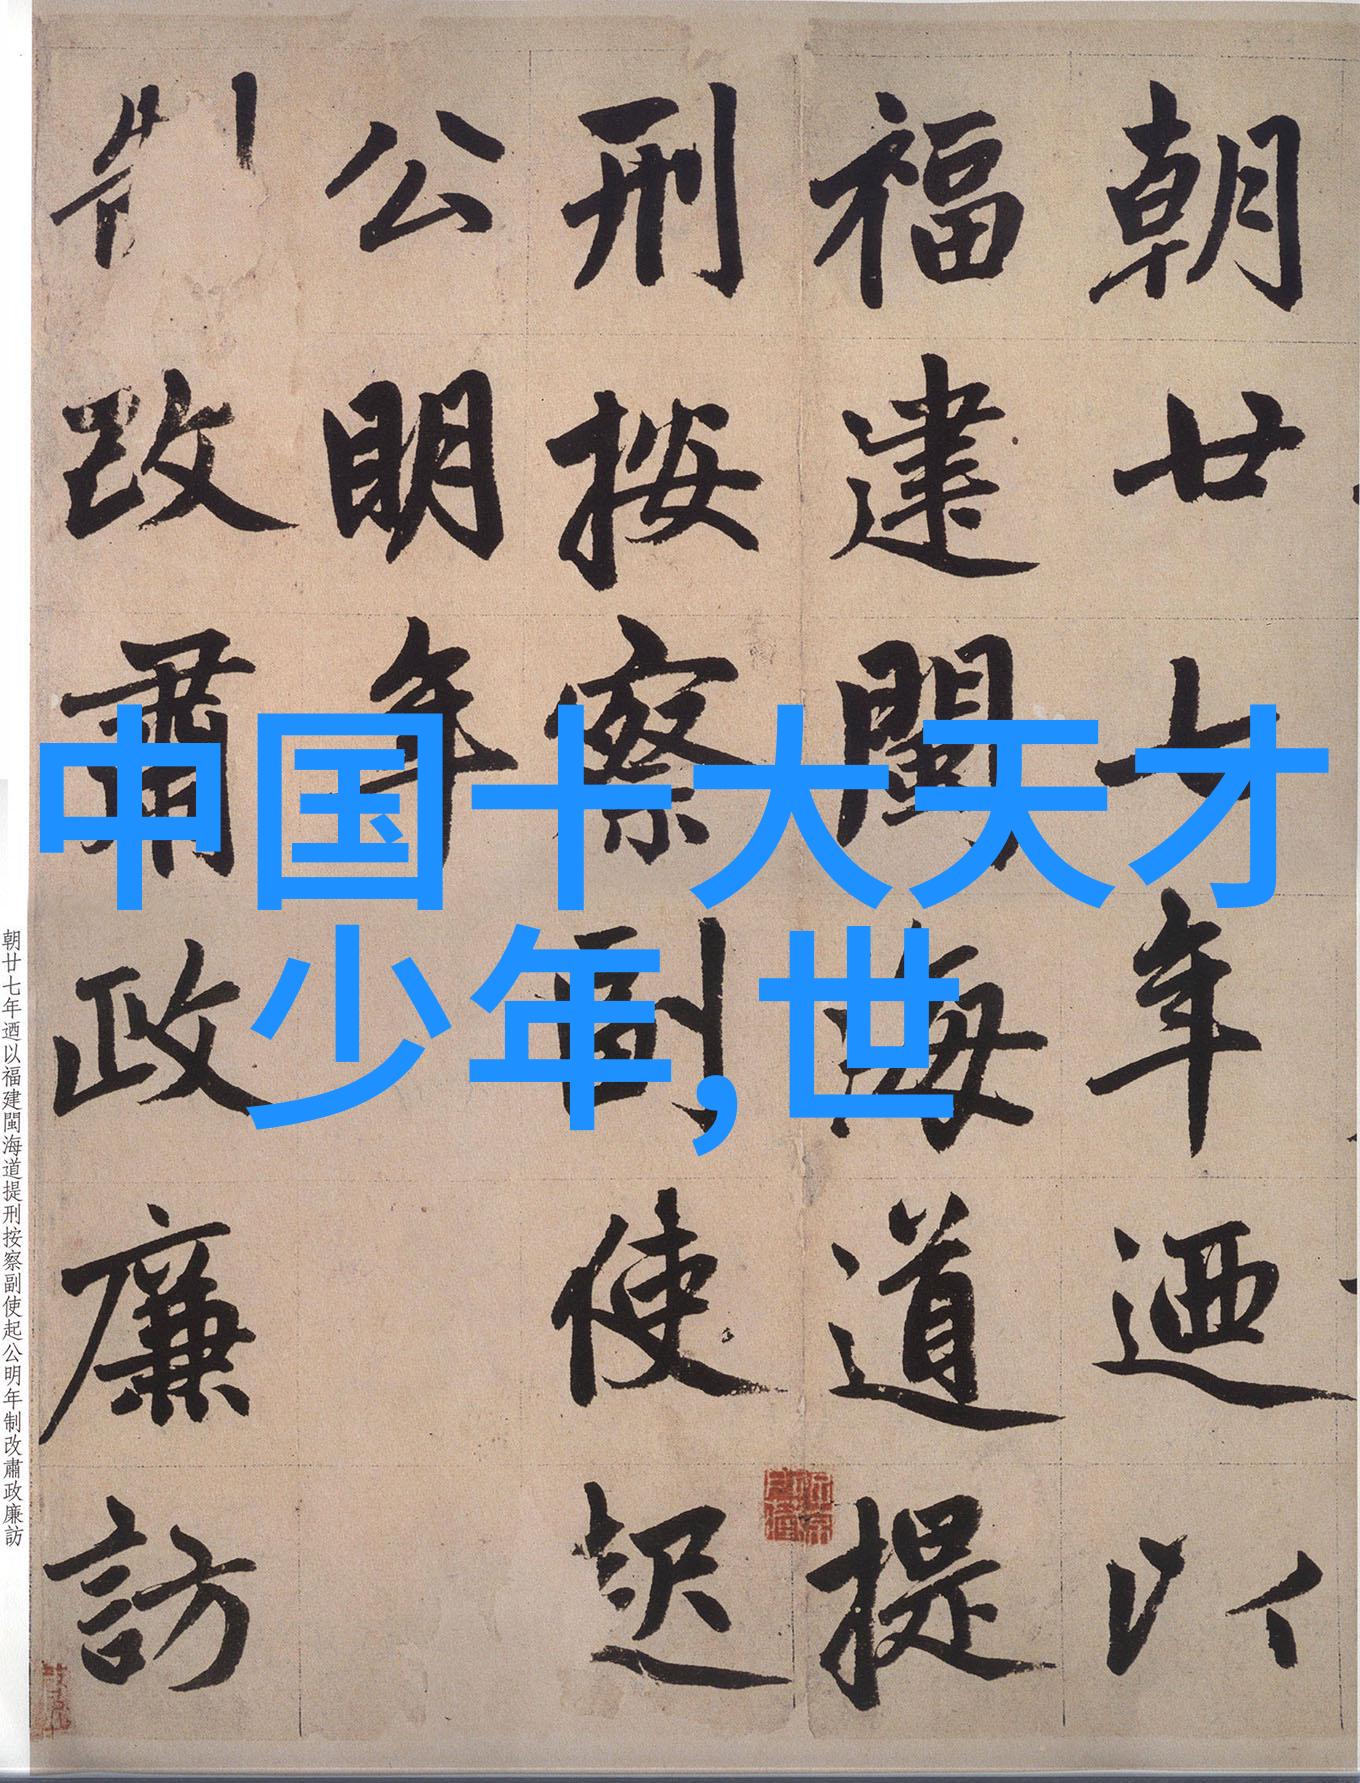 朝廿七年迺以
福建閩海道提
刑按察副使起
公明年
制改肅政廉訪
中国十大天才
少年,世
朝廿七年迺以福建閩海道提刑按察副使起公明年制改肅政廉訪